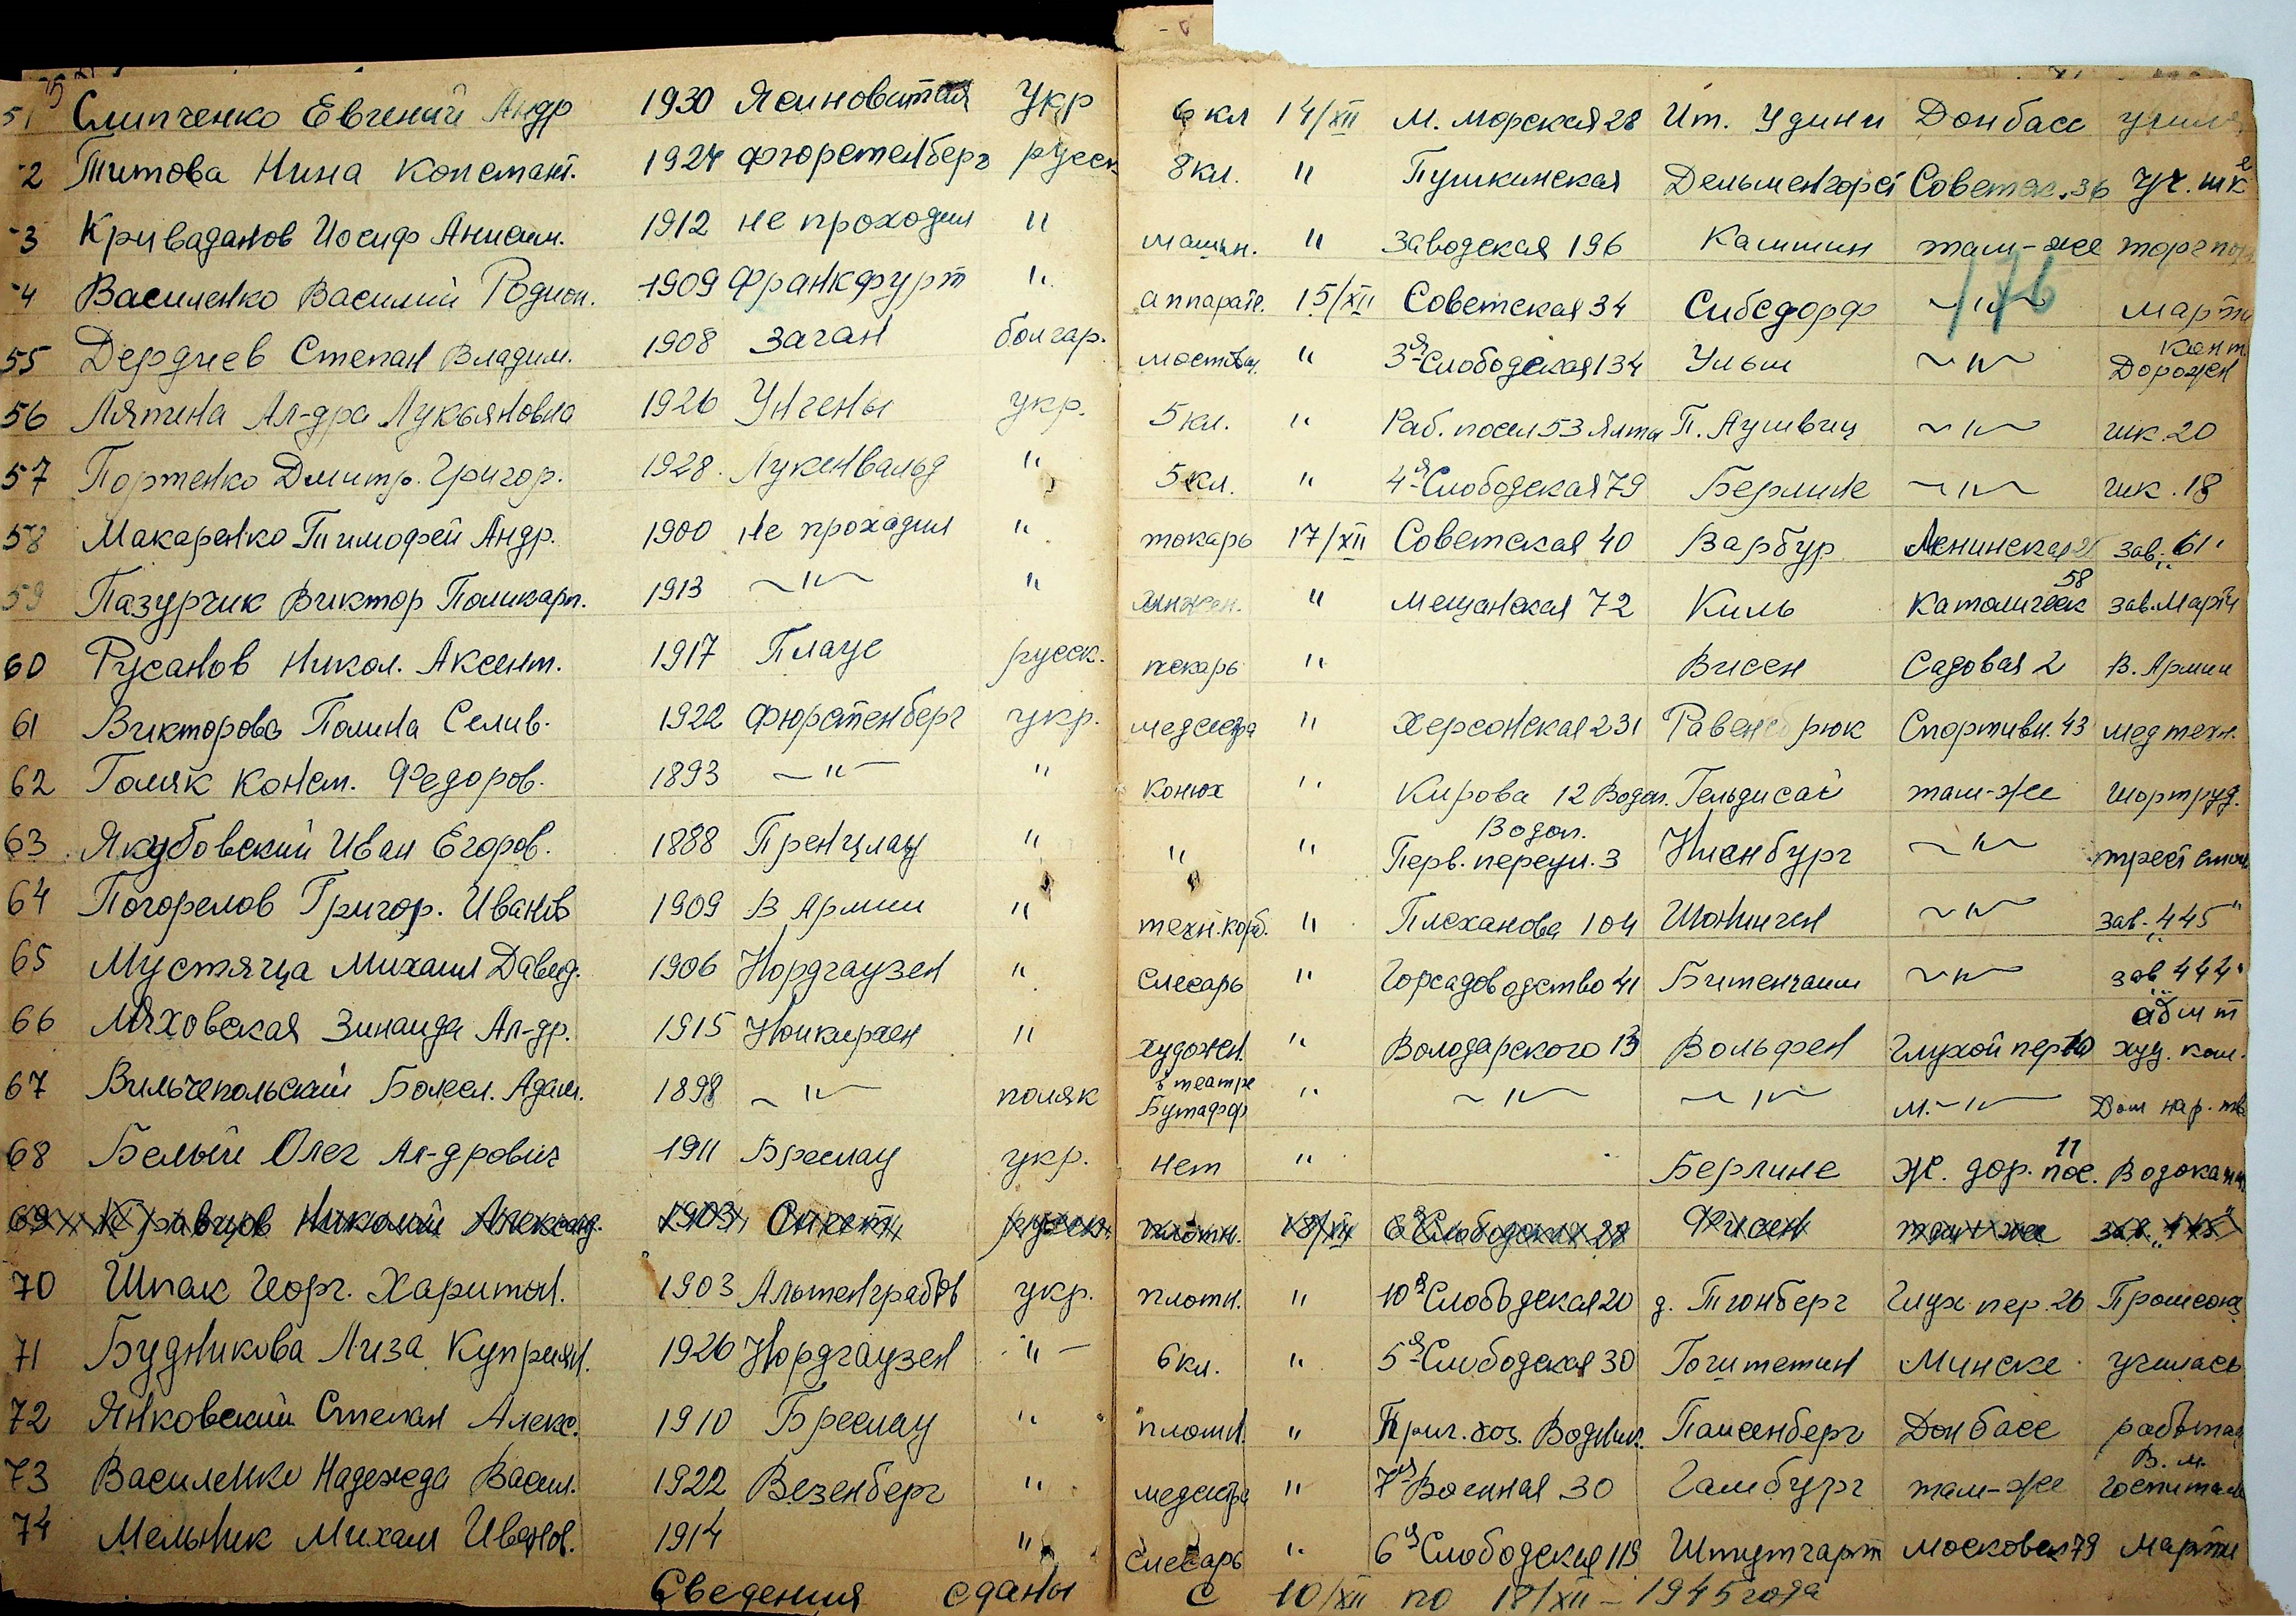 51 Слипченко Евгений Андр 1930 Ясиноватая Укр 6 кл 14/XII М. Морская 28 Ит. Удини Донбасс
52 Титова Нина Констант. 1924 Фюрстенберг русск 8 кл. " Пушкинская Дельменгорст Советск. 36 Уч. шк
-3 Криваданов Иосиф Анисим. 1912 не проходил " машин. " Заводская 196 Каммин там-же
-4 Василенко Василий Родион. 1909 Франкфурт " аппаратч. 15/XII Советская 34 Сибсдорф ~"~ Март
176
55 Дердиев Степан Владим. 1908 Заган болгар. " 3я Слободская 134 Ульм ~"~ Дорожн
56 Ляпина Ал-дра Лукьяновна 1926 Унгены укр. 5 кл. " Раб. посел 53 Ялты П. Аушвиц ~"~ шк. 20
57 Портенко Дмитр. Григор. 1928 Лукенвальд " 5 кл. " 4я Слободская 79 Берлине ~"~ шк. 18
58 Макаренко Тимофей Андр. 1900 не проходил " токарь 17/XII Советская 40 Варбур Ленинская зав. „61"
59 Пазурчик Виктор Поликарп. 1913 ~"~ " инжен. " Мещанская 72 Киль Католическ 58 зав. Марти
60 Русанов Никол. Аксент. 1917 Плауе русск. пекарь " Висен Садовая 2 В. Армии
61 Викторова Полина Селив. 1922 Фюрстенберг укр. медсестра " Херсонская 231 Равенсбрюк Спортивн. 43 мед техн.
62 Голяк Конст. Федоров. 1893 ~"~ " конюх " Кирова 12 Водоп. Гельдисай там-же Шортруд.
63 Якубовский Иван Егоров. 1888 Пренцлау " " " Водоп. Перв. переул. 3 Ниенбург ~"~ трест
64 Погорелов Григор. Иванов 1909 В Армии " техн. кораб. " Плеханова 104 Шонинген ~"~ зав. „445"
65 Мустяца Михаил Давид. 1906 Нордгаузен " слесарь " Горсадоводство 41 Битенгайм ~"~ зав „444"
66 Ляховская Зинаида Ал-др. 1915 Нойкирхен " художн. " Володарского 13 Вольфен Глухой пер 10 худ. ком.
67 Вильчепольский Болесл. Адам. 1898 ~"~ поляк в театре Бутафор " ~"~ ~"~ м. ~"~ Дом нар. тв
68 Белый Олег Ал-дрович 1911 Бреслау укр. нет " Берлине Ж. дор. пос. 11 Водокан
69 Кравцов Николай Александ. 1903 русск. плотн. 18/XII 6я Слободская 28 там же зав. „445"
70 Шпак Георг. Харитон. 1903 Альтенграбов укр. плотн. " 10я Слободская 20 д. Тюнберг Глух. пер. 26 Промсоюз
71 Будникова Лиза Куприян. 1926 Нордгаузен " 6 кл. " 5я Слободская 30 Гогштетин Минске училась
72 Янковский Степан Алекс. 1910 Бреслау " плотн. " Приг. хоз. Водник. Паисенберг Донбасс работал
73 Василенко Надежда Васил. 1922 Везенберг " медсестра " 7я Военная 30 Гамбург там-же В. М. Госпиталь
74 Мельник Михаил Иванов. 1914 " слесарь " 6я Слободская 119 Штутгарт Московск 79 Марти
Сведения сданы с 10/XII по 18/XII – 1945 года